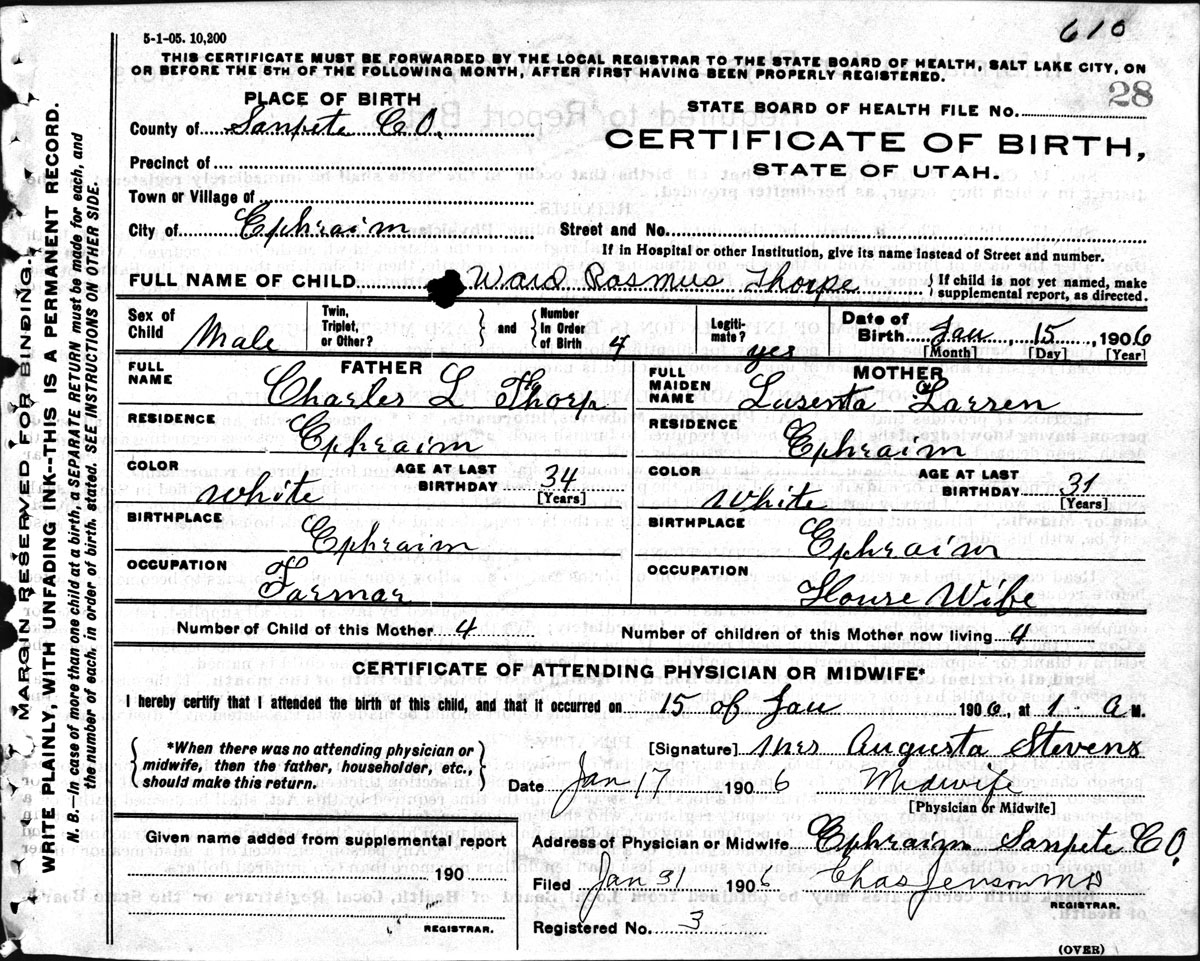 610
5-1-05. 10,200
THIS CERTIFICATE MUST BE FORWARDED BY THE LOCAL REGISTRAR TO THE STATE BOARD OF HEALTH, SALT LAKE CITY, ON
OR BEFORE THE 5TH OF THE FOLLOWING MONTH, AFTER FIRST HAVING BEEN PROPERLY REGISTERED.
28
MARGIN RESERVED FOR BINDING
WRITE PLAINLY, WITH UNFADING INK--THIS IS A PERMANENT RECORD.
N. B.--In case of more than one child at a birth, a SEPARATE RETURN must be made for each, and
the number of each, in order of birth, stated. SEE INSTRUCTIONS ON OTHER SIDE.
PLACE OF BIRTH
County of Sanpete CO.
Precinct of
Town or Village of
City of Ephraim
STATE BOARD OF HEALTH FILE No.
CERTIFICATE OF BIRTH,
STATE OF UTAH.
Street and No.
If in Hospital or other Institution, give its name instead of Street and number.
FULL NAME OF CHILD Ward Rasmus Thorpe { If child is not yet named, make
supplemental report, as directed.
Sex of Child Male
Twin, Triplet, or Other? } and { Number In Order of Birth 4
Legitimate? yes
Date of Birth Jan, 15, 1906
[Month] [Day] [Year]
FATHER
FULL NAME Charles L Thorp.
RESIDENCE Ephraim
COLOR White AGE AT LAST BIRTHDAY 34 [Years]
BIRTHPLACE Ephraim
OCCUPATION Farmar
MOTHER
FULL MAIDEN NAME Lusenta Larsen
RESIDENCE Ephraim
COLOR White AGE AT LAST BIRTHDAY 31 [Years]
BIRTHPLACE Ephraim
OCCUPATION House Wife
Number of Child of this Mother 4 Number of children of this Mother now living 4
CERTIFICATE OF ATTENDING PHYSICIAN OR MIDWIFE*
I hereby certify that I attended the birth of this child, and that it occurred on 15 of Jan 1906, at 1 - a M.
{ *When there was no attending physician or
midwife, then the father, householder, etc.,
should make this return. }
[Signature] Mrs Augusta Stevens
Date Jan 17 1906 Midwife
[Physician or Midwife]
Given name added from supplemental report
190
REGISTRAR.
Address of Physician or Midwife Ephraim Sanpete CO.
Filed Jan 31 1906 Chas Jenson MD
REGISTRAR.
Registered No. 3
(OVER)